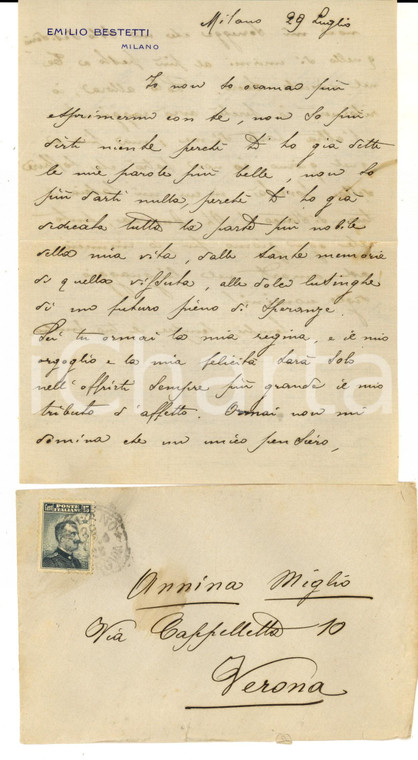 EMILIO BESTETTI
MILANO
Milano 29 Luglio
Io non so oramai più
esprimermi con te, non so più
dirti niente perchè Ti ho già dette
le mie parole più belle, non so
più darti nulla, perchè Ti ho già
dedicata tutta la parte più nobile
della mia vita, dalle sante memorie
di quella vissuta, alle dolci lusinghe
di un futuro pieno di Speranze.
Sei tu ormai la mia regina, e il mio
orgoglio e la mia felicità sarà solo
nell'offrirti sempre più grande il mio
tributo d'affetto. Ormai non mi
domina che un unico pensiero,
POSTE
ITALIANE
Cent. 15
Annina Miglio
Via Cappelletta 10
Verona